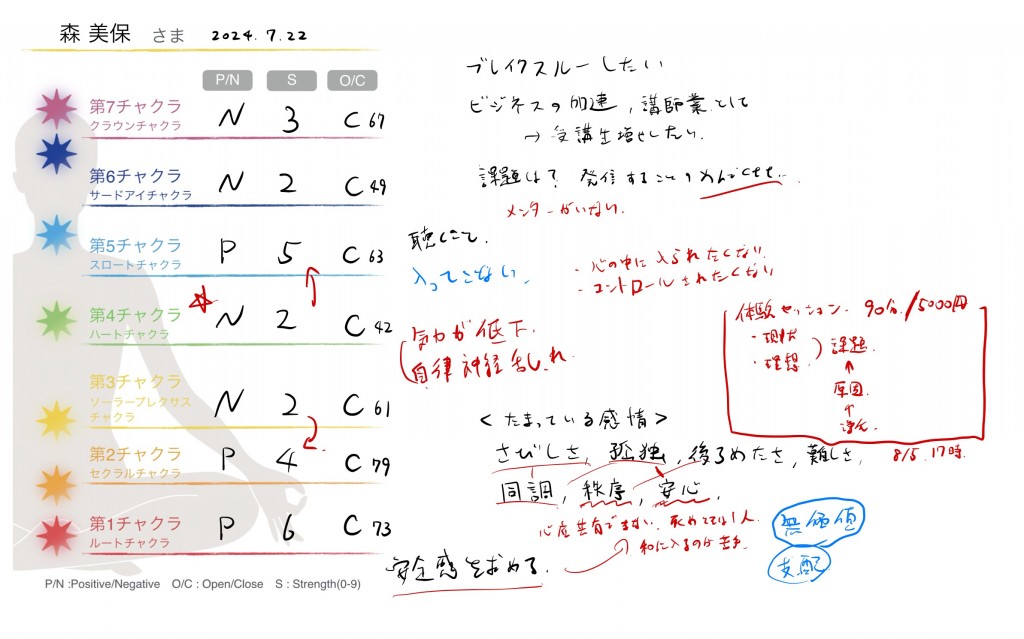 森 美保 さま 2024.7.22
P/N S O/C
第7チャクラ
クラウンチャクラ
N 3 C 67
第6チャクラ
サードアイチャクラ
N 2 C 49
第5チャクラ
スロートチャクラ
P 5 C 63
第4チャクラ
ハートチャクラ
N 2 C 42
第3チャクラ
ソーラープレクサス
チャクラ
N 2 C 61
第2チャクラ
セクラルチャクラ
P 4 C 79
第1チャクラ
ルートチャクラ
P 6 C 73
P/N :Positive/Negative O/C : Open/Close S : Strength(0-9)
ブレイクスルーしたい
ビジネスの加速，講師業として
→ 受講生増やしたい．
課題は？ 発信すること
メンターがいない．
聴くこと．
入ってこない．
・心の中に入られたくない
・コントロールされたくない
気力が低下．
自律神経乱れ
体験セッション． 90分/5000円
・現状
・理想
課題
↑
原因
↑
浄化
8/5．17時．
<たまっている感情>
さびしさ，孤独，後ろめたさ，難しさ，
同調，秩序，安心．
心底共有できない． 1人．
和に入るのが
安全感を求める．
無価値
支配